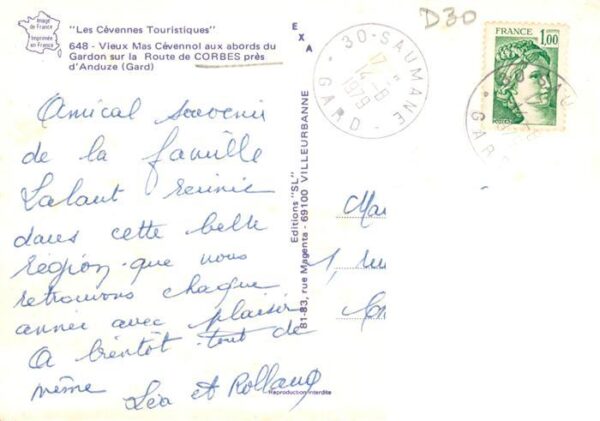 Image
de France
Imprimée
en France
"Les Cévennes Touristiques"
648 - Vieux Mas Cévennol aux abords du
Gardon sur la Route de CORBES près
d'Anduze (Gard)
EXA
D30
30-SAUMANE
17 H
14 -8
1979
GARD
FRANCE
1,00
POSTES
Amical souvenir
de la famille
Lalaut réunie
dans cette belle
région que nous
retrouvons chaque
année avec plaisir
A bientôt tout de
même Léa et Rolland
Editions "SL"
81-83, rue Magenta - 69100 VILLEURBANNE
Reproduction interdite